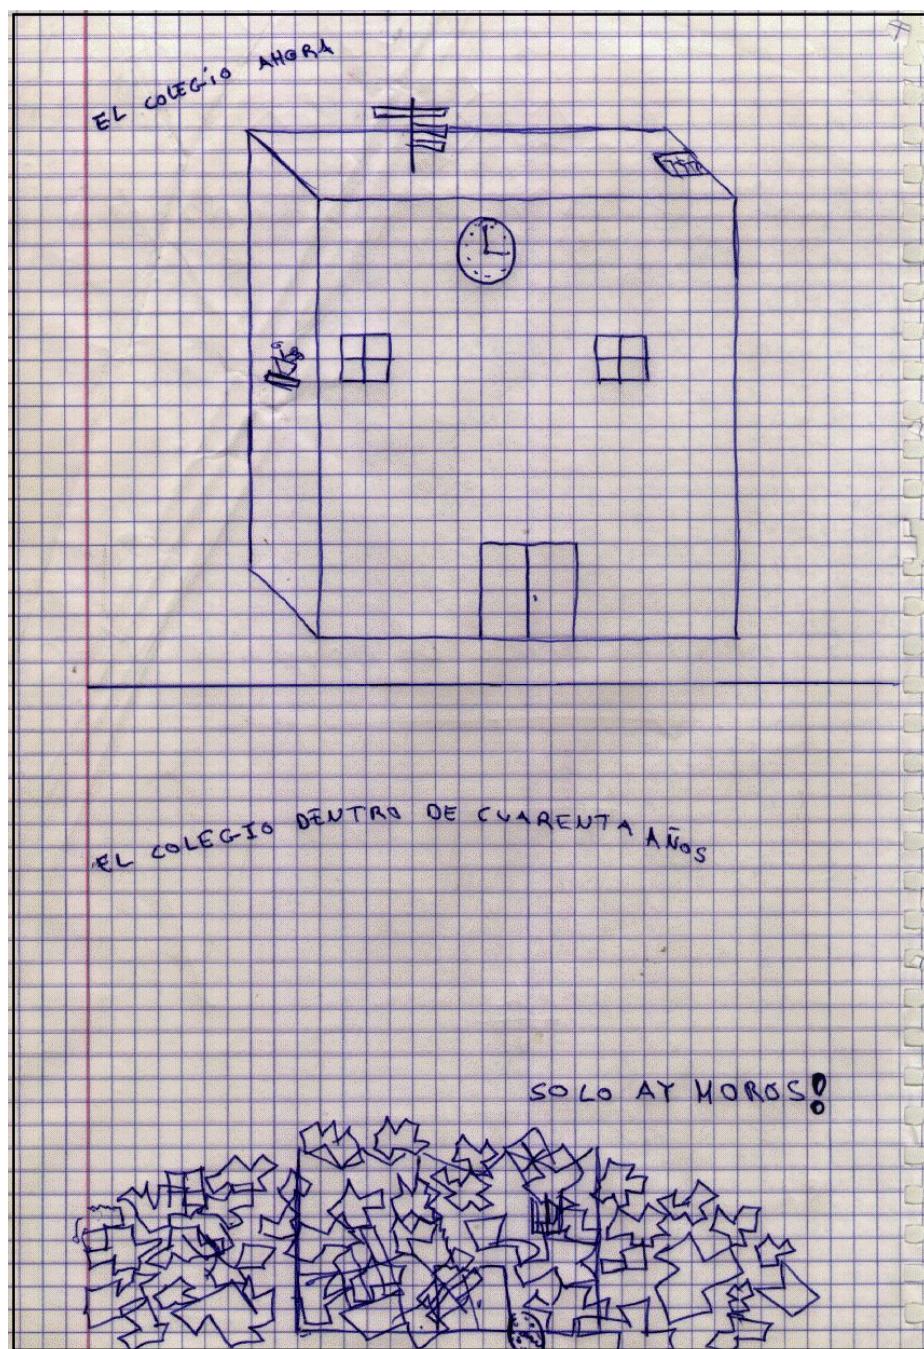 EL COLEGIO AHORA
EL COLEGIO DENTRO DE CUARENTA AÑOS
SOLO AY MOROS!